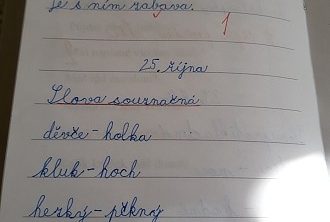 je s ním zábava.
1
25. října
Slova souznačná
děvče - holka
kluk - hoch
hezký - pěkný